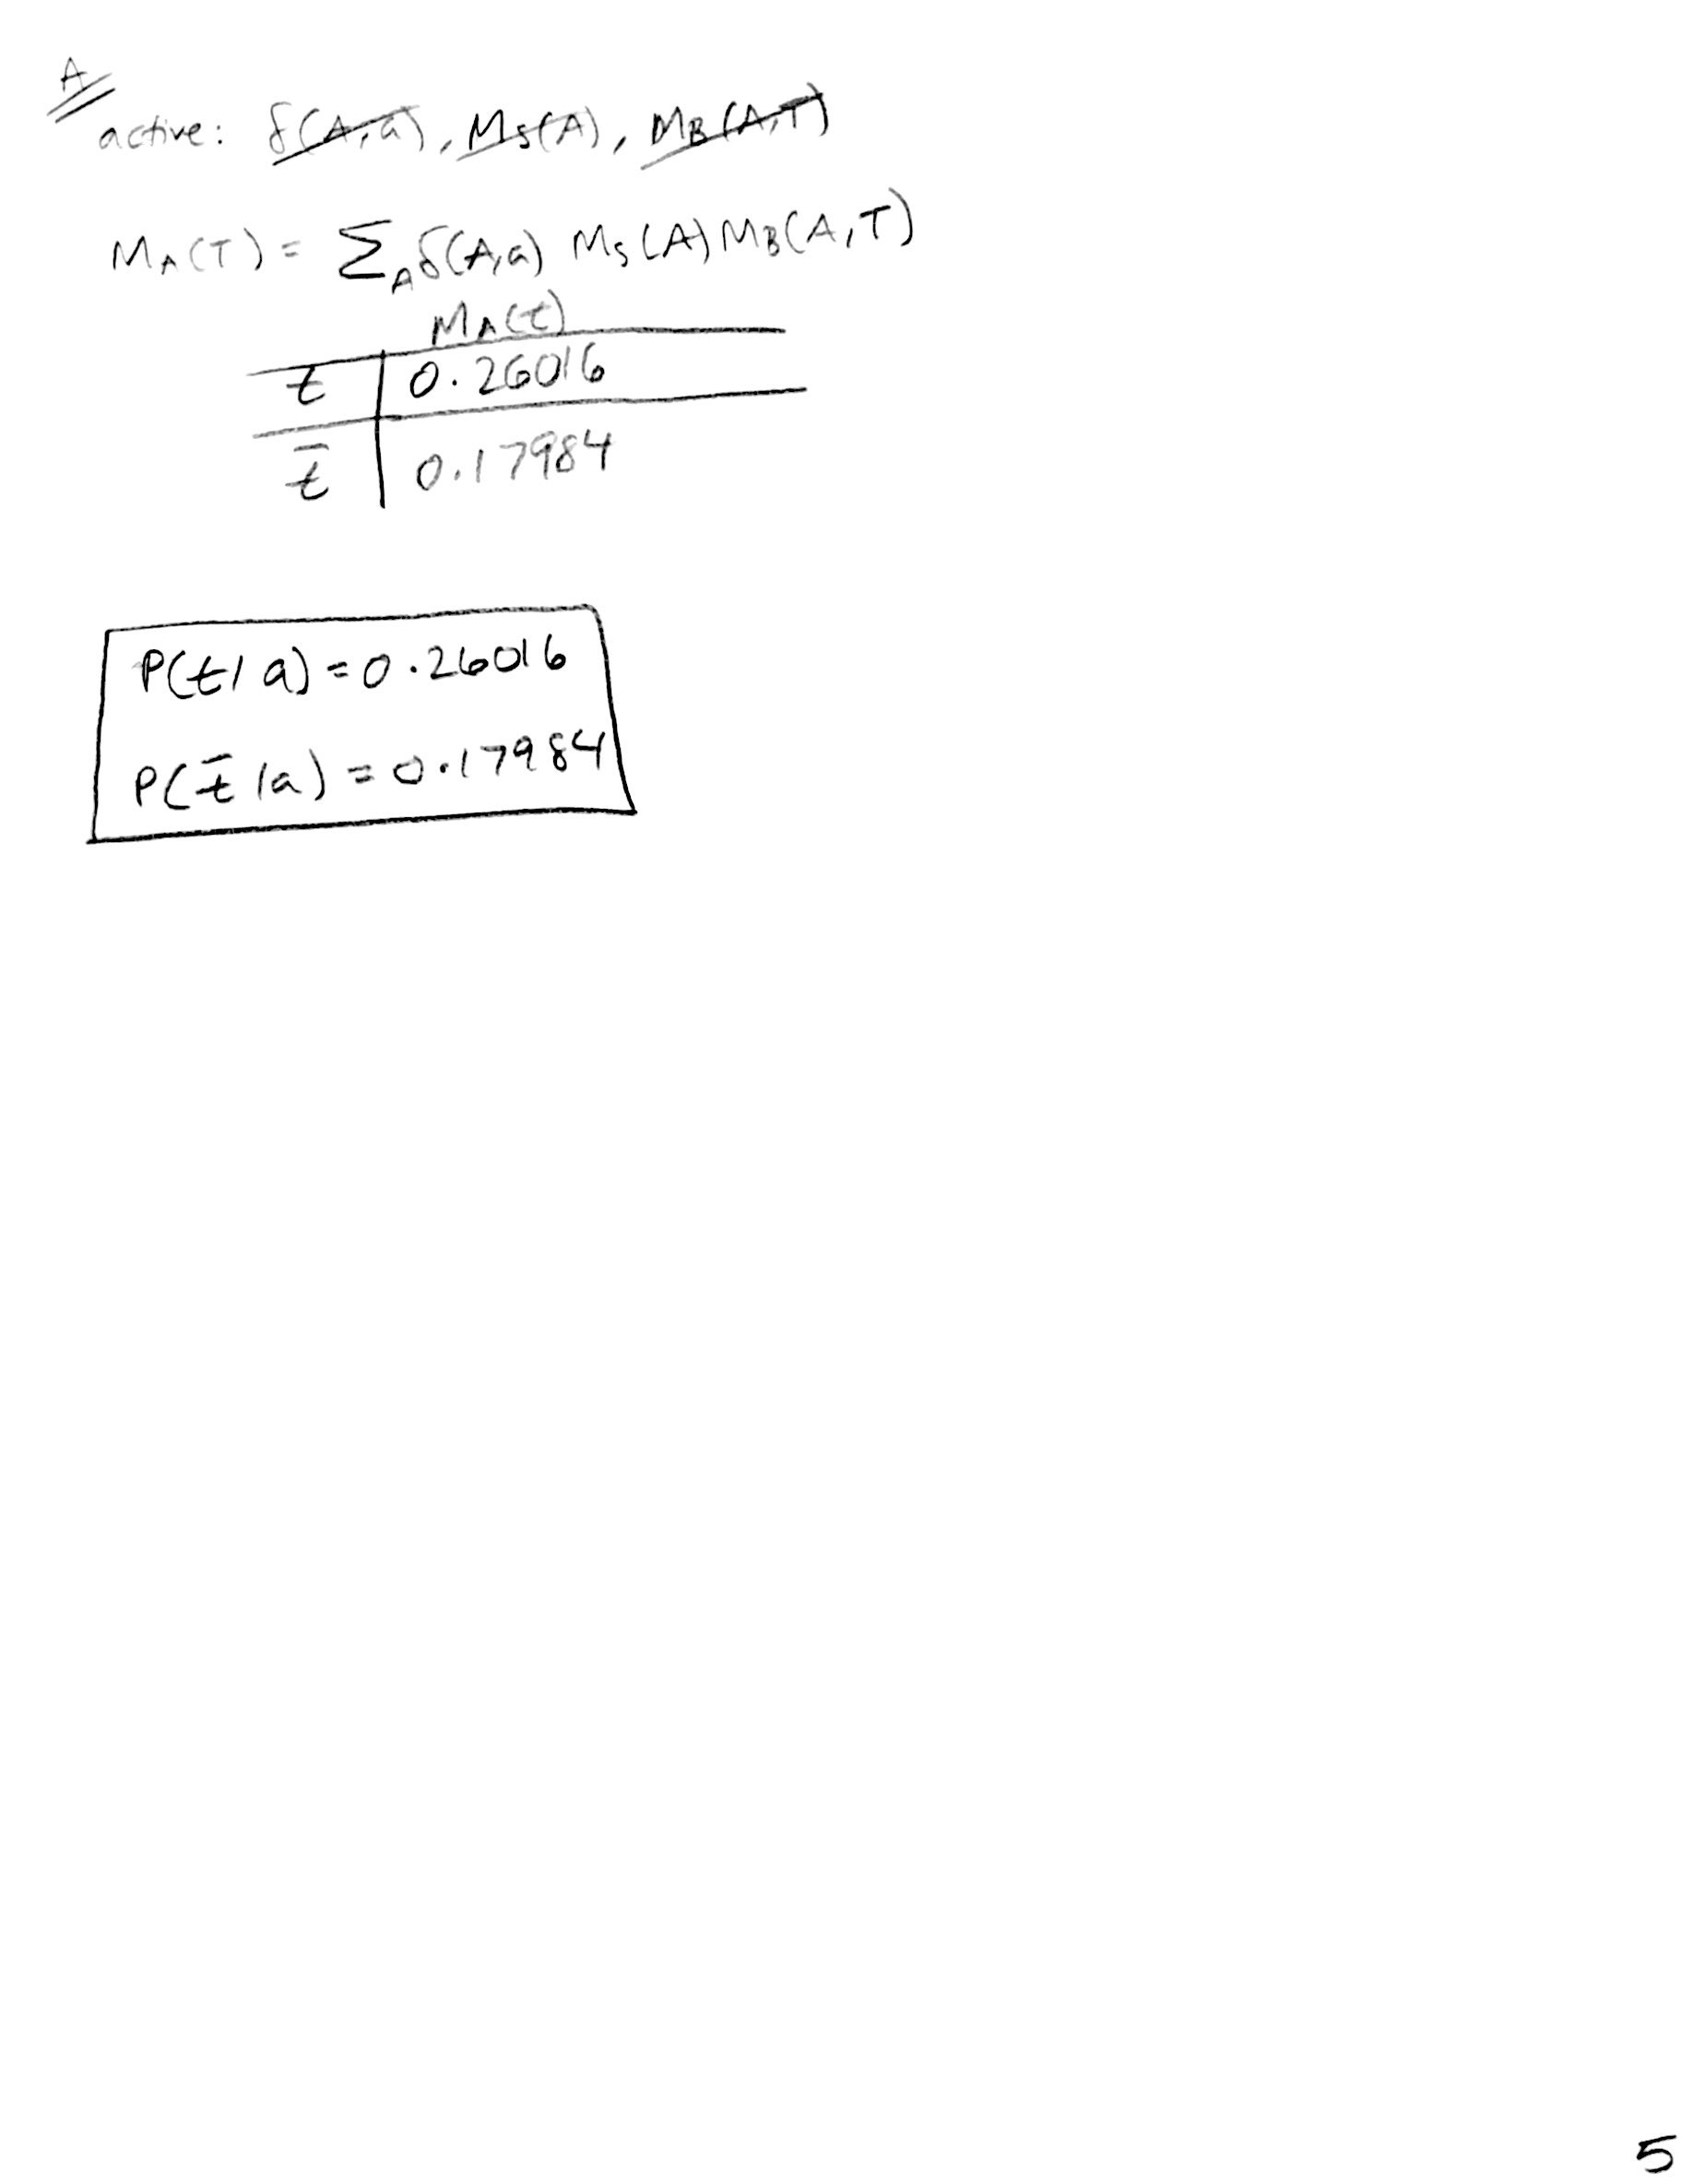 A
active: δ(A,a), Ms(A), MB(A,T)
MA(T) = ΣA δ(A,a) Ms(A) MB(A,T)
MA(t)
t 0.26016
t̄ 0.17984
P(t|a) = 0.26016
P(t̄|a) = 0.17984
5